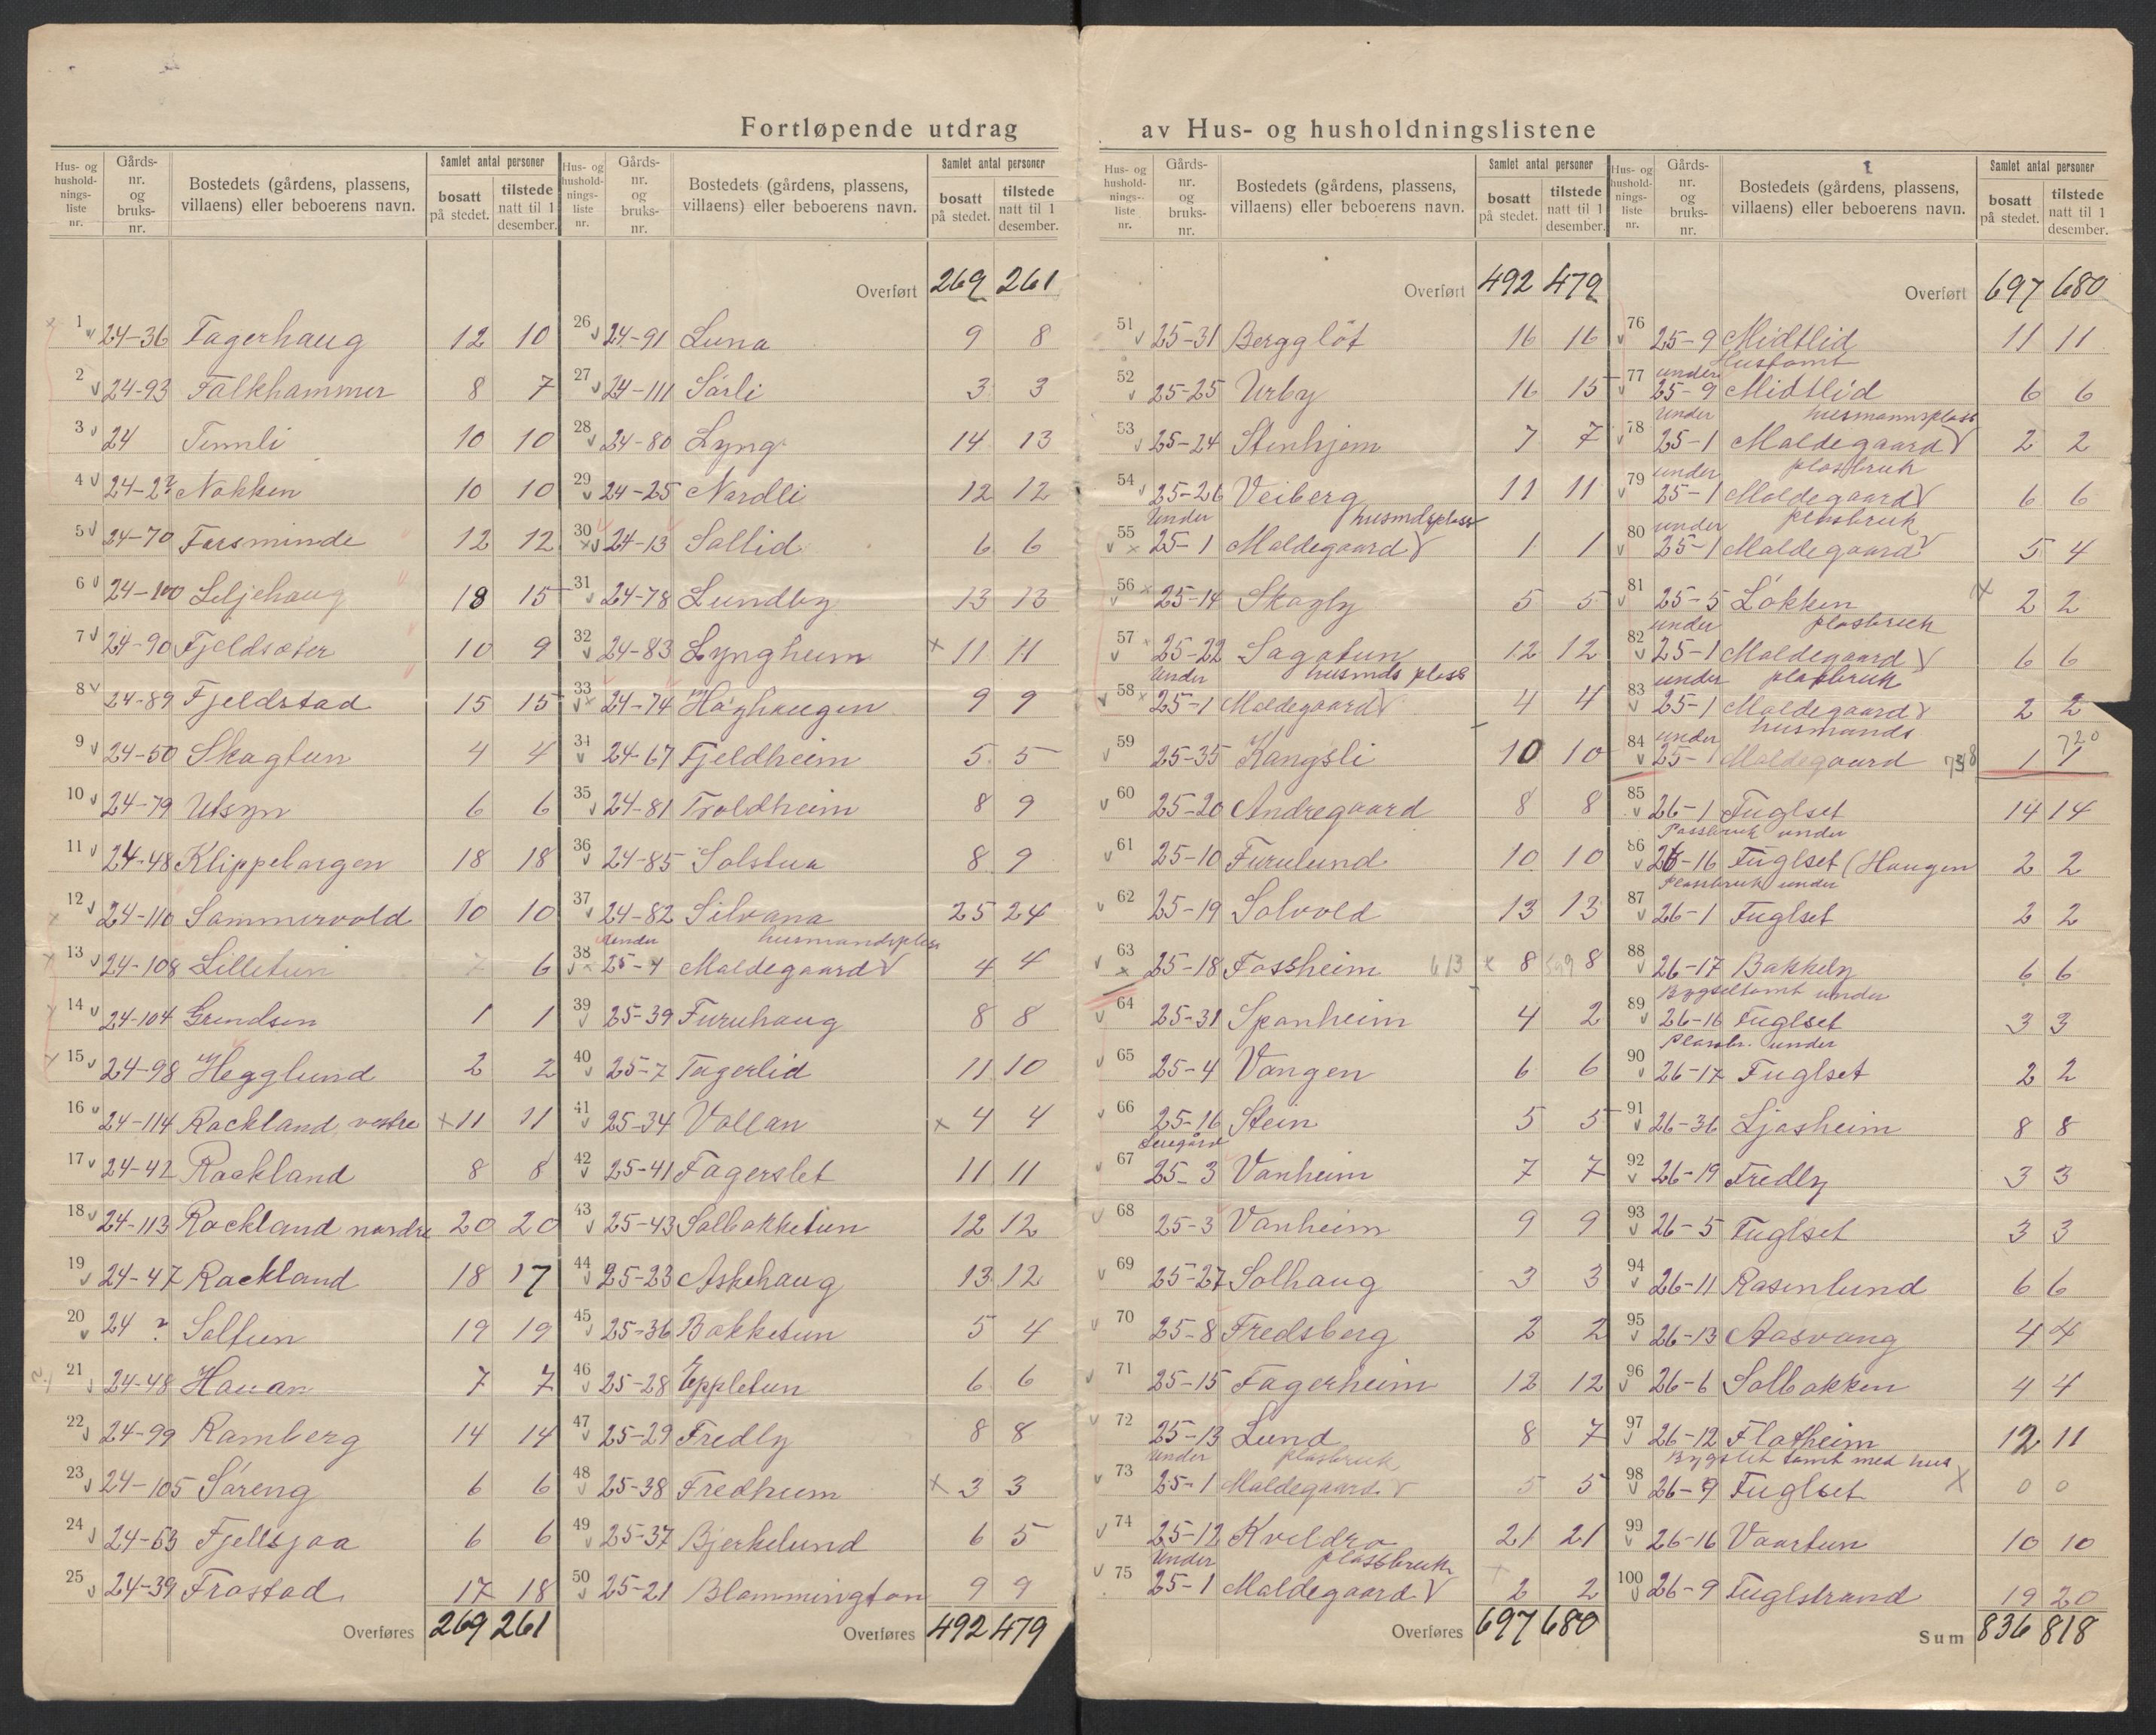 Fortløpende utdrag av Hus- og husholdningslistene
Hus- og husholdningsliste nr. | Gårdsnr. og bruksnr. | Bostedets (gårdens, plassens, villaens) eller beboerens navn. | Samlet antal personer bosatt på stedet. | tilstede natt til 1 desember.
1 24-36 Fagerhaug 12 10
2 24-93 Falkhammer 8 7
3 24 Tennli 10 10
4 24-2? Nakken 10 10
5 24-70 Farsminde 12 12
6 24-100 Liljehaug 18 15
7 24-90 Fjeldsæter 10 9
8 24-89 Fjeldstad 15 15
9 24-50 Skogtun 4 4
10 24-79 Utsyn 6 6
11 24-48 Klippeborgen 18 18
12 24-110 Sommervold 10 10
13 24-108 Lilletun 7 6
14 24-104 Grindsen 1 1
15 24-98 Hegglund 2 2
16 24-114 Rockland vestre x 11 11
17 24-42 Rockland 8 8
18 24-113 Rockland nordre 20 20
19 24-47 Rockland 18 17
20 24 ? Soltun 19 19
21 24-48 Hauan 7 7
22 24-99 Ramberg 14 14
23 24-105 Søreng 6 6
24 24-53 Fjellsjaa 6 6
25 24-39 Frostad 17 18
Overføres 269 261
Hus- og husholdningsliste nr. | Gårdsnr. og bruksnr. | Bostedets (gårdens, plassens, villaens) eller beboerens navn. | Samlet antal personer bosatt på stedet. | tilstede natt til 1 desember.
Overført 269 261
26 24-91 Luna 9 8
27 24-111 Sørli 3 3
28 24-80 Lyng 14 13
29 24-25 Nordli 12 12
30 24-13 Sollid 6 6
31 24-78 Lundby 13 13
32 24-83 Lyngheim x 11 11
33 24-74 Høghaugen 9 9
34 24-67 Fjeldheim 5 5
35 24-81 Troldheim 8 9
36 24-85 Solstua 8 9
37 24-82 Silvana 25 24
under husmandsplass
38 25-1 Moldegaard 4 4
39 25-39 Furuhaug 8 8
40 25-7 Fagerlid 11 10
41 25-34 Vollan x 4 4
42 25-41 Fagerslet 11 11
43 25-43 Solbakketun 12 12
44 25-23 Askehaug 13 12
45 25-36 Bakketun 5 4
46 25-28 Eppletun 6 6
47 25-29 Fredly 8 8
48 25-38 Fredheim x 3 3
49 25-37 Bjerkelund 6 5
50 25-21 Blommington 9 9
Overføres 492 479
Hus- og husholdningsliste nr. | Gårdsnr. og bruksnr. | Bostedets (gårdens, plassens, villaens) eller beboerens navn. | Samlet antal personer bosatt på stedet. | tilstede natt til 1 desember.
Overført 492 479
51 25-31 Bergglöt 16 16
52 25-25 Urby 16 15
53 25-24 Stenhjem 7 7
54 25-26 Veiberg 11 11
Under husmdsplass
55 25-1 Moldegaard 1 1
56 25-14 Skogly 5 5
57 25-22 Sagatun 12 12
Under husmds plass
58 25-1 Moldegaard 4 4
59 25-35 Kangsli 10 10
60 25-20 Andregaard 8 8
61 25-10 Furulund 10 10
62 25-19 Solvold 13 13
63 25-18 Fossheim 613 x 8 599 8
64 25-31 Spanheim 4 2
65 25-4 Vangen 6 6
66 25-16 Stein 5 5
Leiegård
67 25-3 Vanheim 7 7
68 25-3 Vanheim 9 9
69 25-27 Solhaug 3 3
70 25-8 Fredsberg 2 2
71 25-15 Fagerheim 12 12
72 25-13 Lund 8 7
Under plasbruk
73 25-1 Moldegaard 5 5
74 25-12 Kveldro 21 21
Under plassbruk
75 25-1 Moldegaard 2 2
Overføres 697 680
Hus- og husholdningsliste nr. | Gårdsnr. og bruksnr. | Bostedets (gårdens, plassens, villaens) eller beboerens navn. | Samlet antal personer bosatt på stedet. | tilstede natt til 1 desember.
Overført 697 680
76 25-9 Midtlid 11 11
under Hustomt
77 25-9 Midtlid 6 6
Under husmannsplass
78 25-1 Moldegaard 2 2
under plassbruk
79 25-1 Moldegaard 6 6
under plasbruk
80 25-1 Moldegaard 5 4
81 25-5 Løkken x 2 2
under plasbruk
82 25-1 Moldegaard 6 6
under plasbruk
83 25-1 Moldegaard 2 2
under husmands
84 25-1 Moldegaard 738 1 720 1
85 26-1 Fuglset 14 14
Plassbruk under
86 26-16 Fuglset (Haugen 2 2
Plassbruk under
87 26-1 Fuglset 2 2
88 26-17 Bakkely 6 6
Bygseltomt under
89 26-16 Fuglset 3 3
Plassbr. under
90 26-17 Fuglset 2 2
91 26-36 Ljosheim 8 8
92 26-19 Fredly 3 3
93 26-5 Fuglset 3 3
94 26-11 Rosenlund 6 6
95 26-13 Aasvang 4 4
96 26-6 Solbakken 4 4
97 26-12 Flatheim 12 11
Bygslet tomt med hus
98 26-9 Fuglset x 0 0
99 26-16 Vaartun 10 10
100 26-9 Fuglstrand 19 20
Sum 836 818